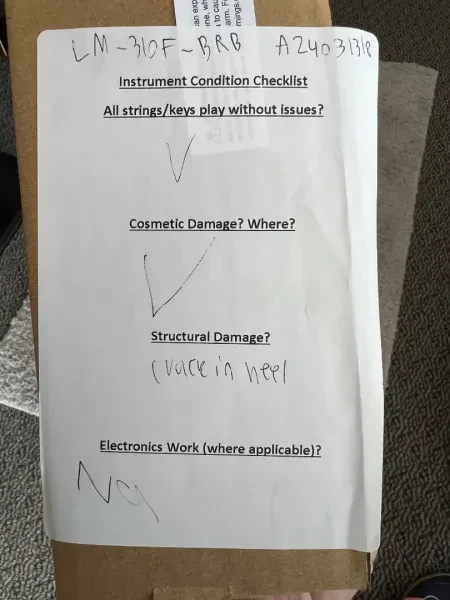 LM-310F-BRB A24031318
Instrument Condition Checklist
All strings/keys play without issues?
Cosmetic Damage? Where?
Structural Damage?
Crack in heel
Electronics Work (where applicable)?
Na